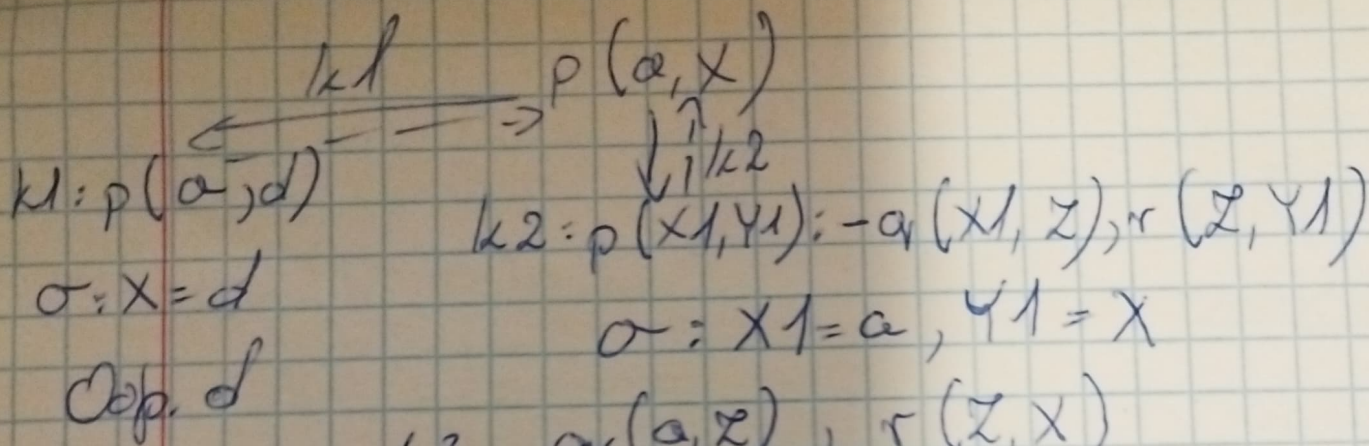 k1 p(a,X)
k2
k1: p(a,d)
k2: p(X1,Y1):-q(X1,Z),r(Z,Y1)
σ: X=d
σ: X1=a, Y1=X
Одр. d
q(a,Z), r(Z,X)